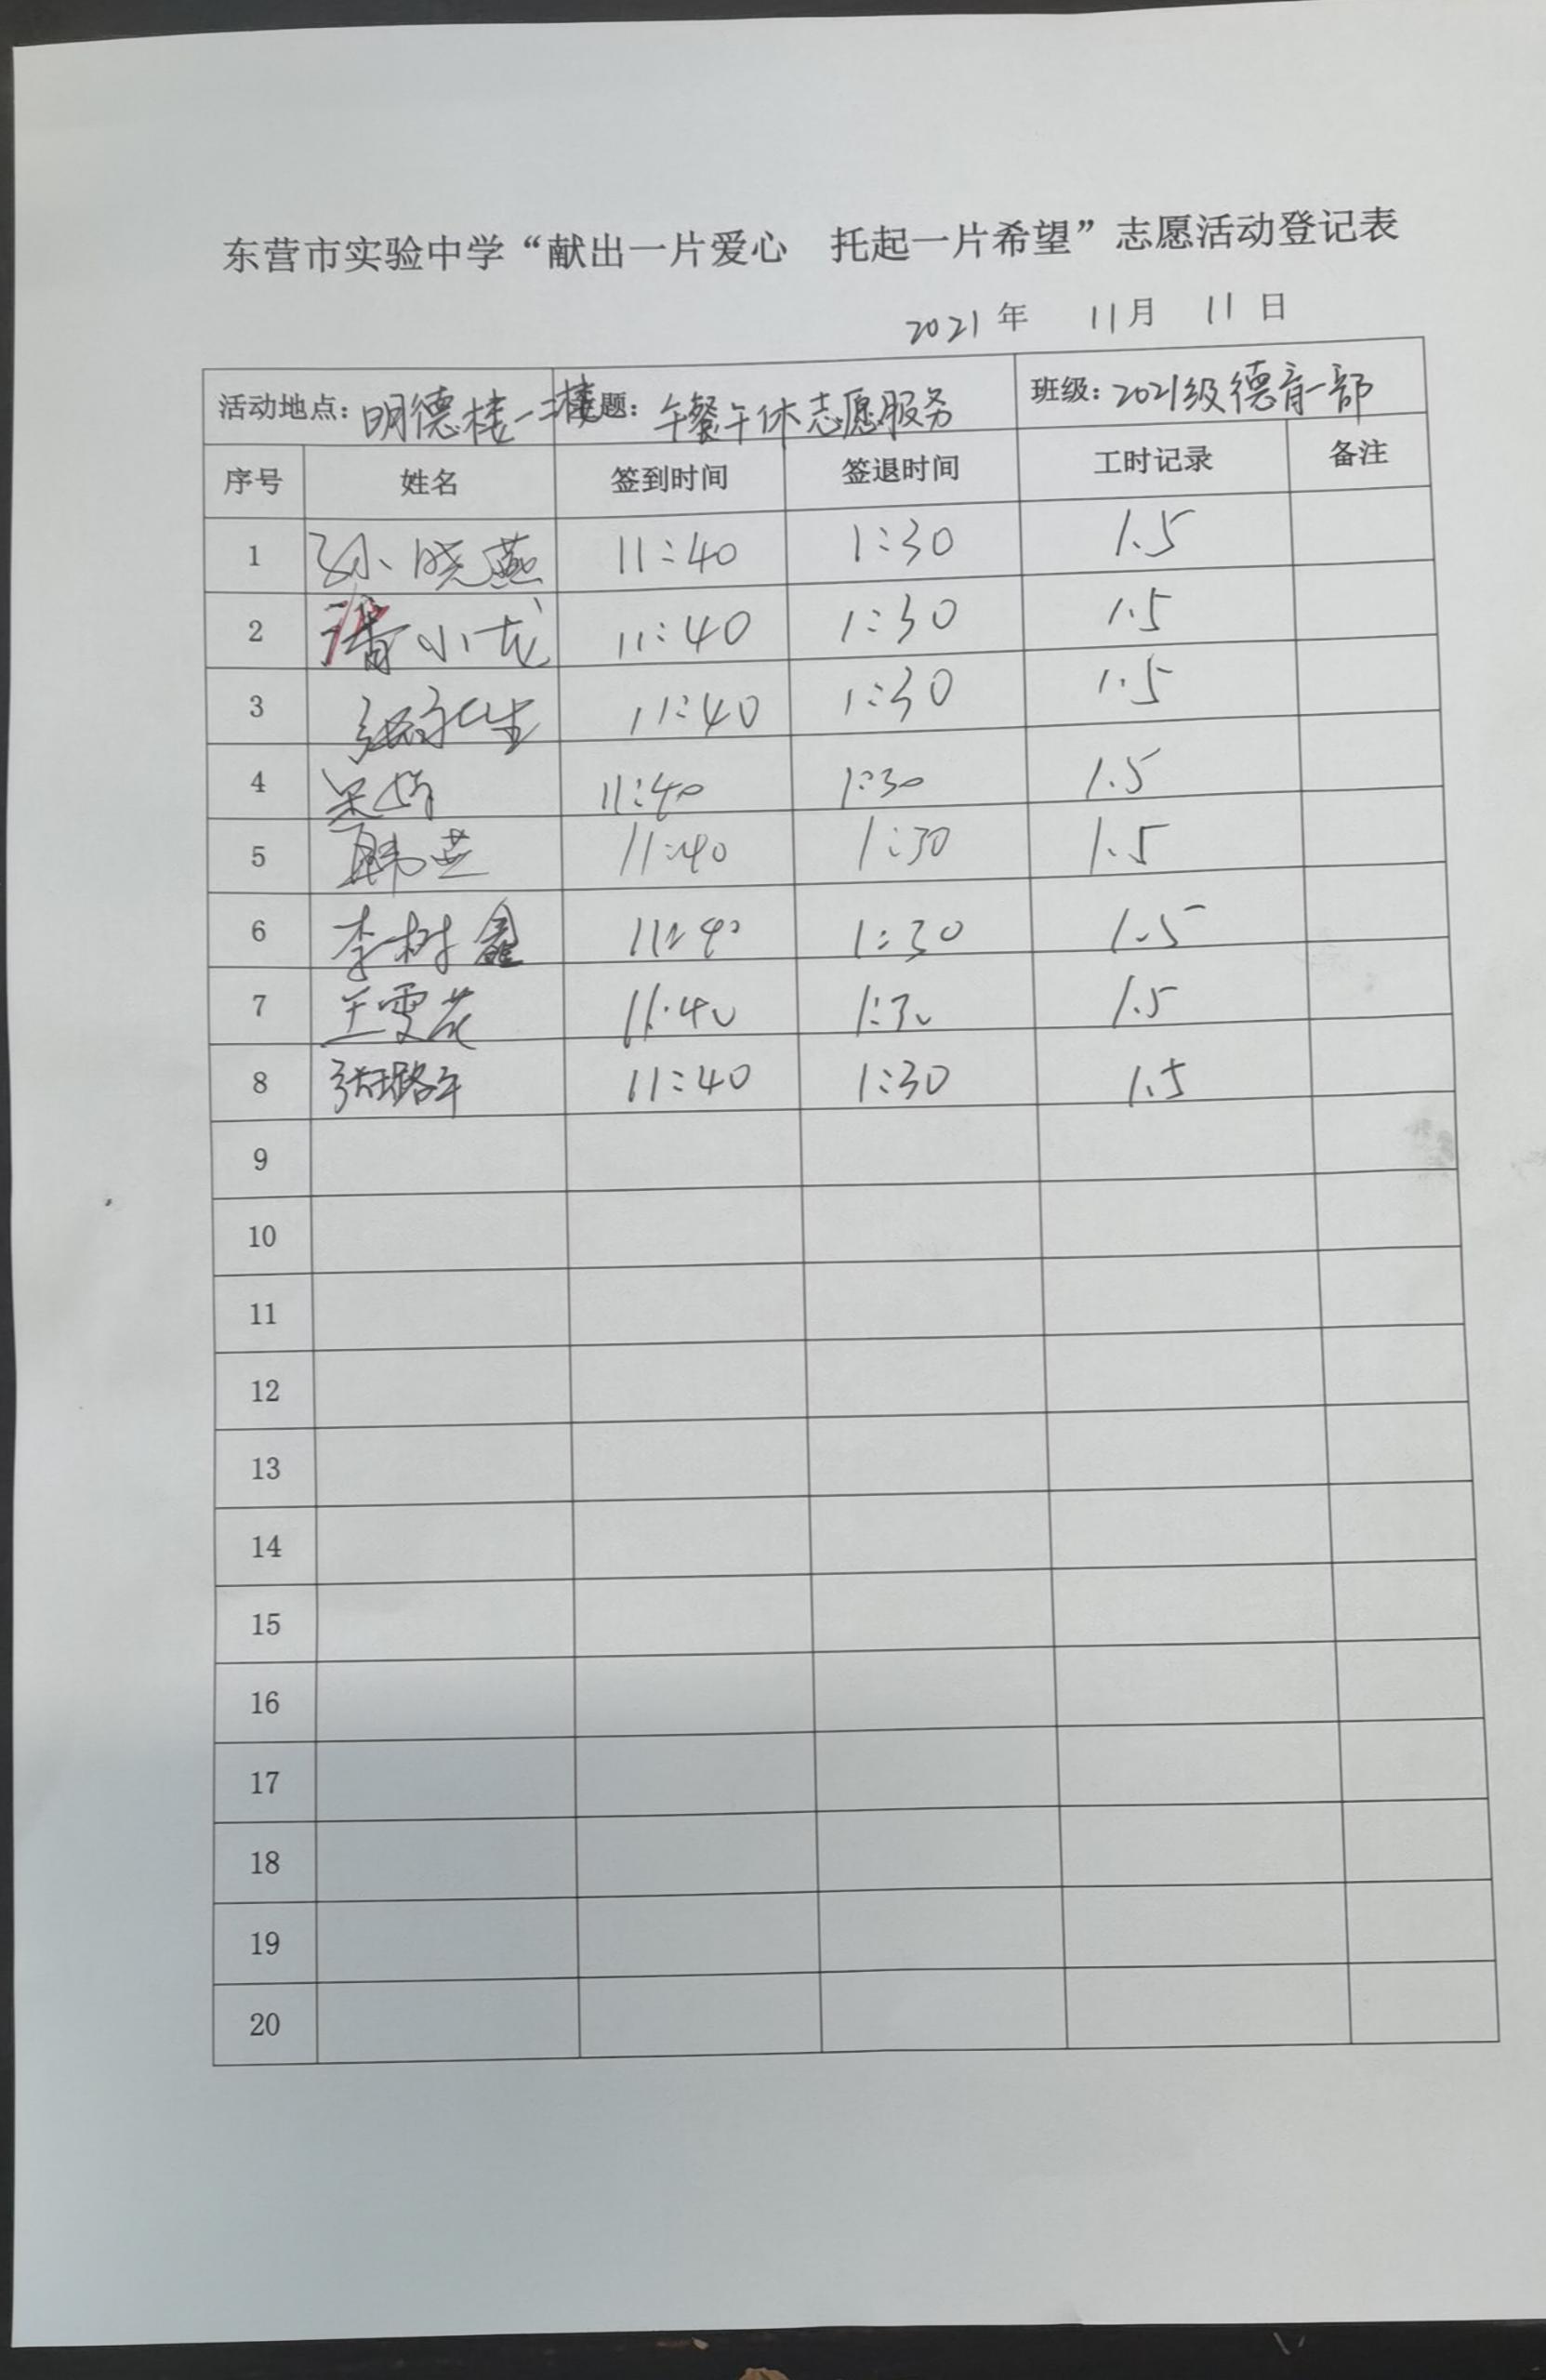 东营市实验中学“献出一片爱心 托起一片希望”志愿活动登记表
2021 年 11 月 11 日
活动地点：明德楼一二楼 题：午餐午休志愿服务 班级：2021级德育一部
序号 姓名 签到时间 签退时间 工时记录 备注
1 孙晓燕 11:40 1:30 1.5
2 潘小龙 11:40 1:30 1.5
3 11:40 1:30 1.5
4 11:40 1:30 1.5
5 韩芸 11:40 1:30 1.5
6 李树鑫 11:40 1:30 1.5
7 王雪花 11:40 1:30 1.5
8 张路年 11:40 1:30 1.5
9
10
11
12
13
14
15
16
17
18
19
20